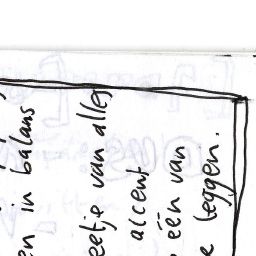 en in balans
eetje van alles
accent
één van
e leggen.